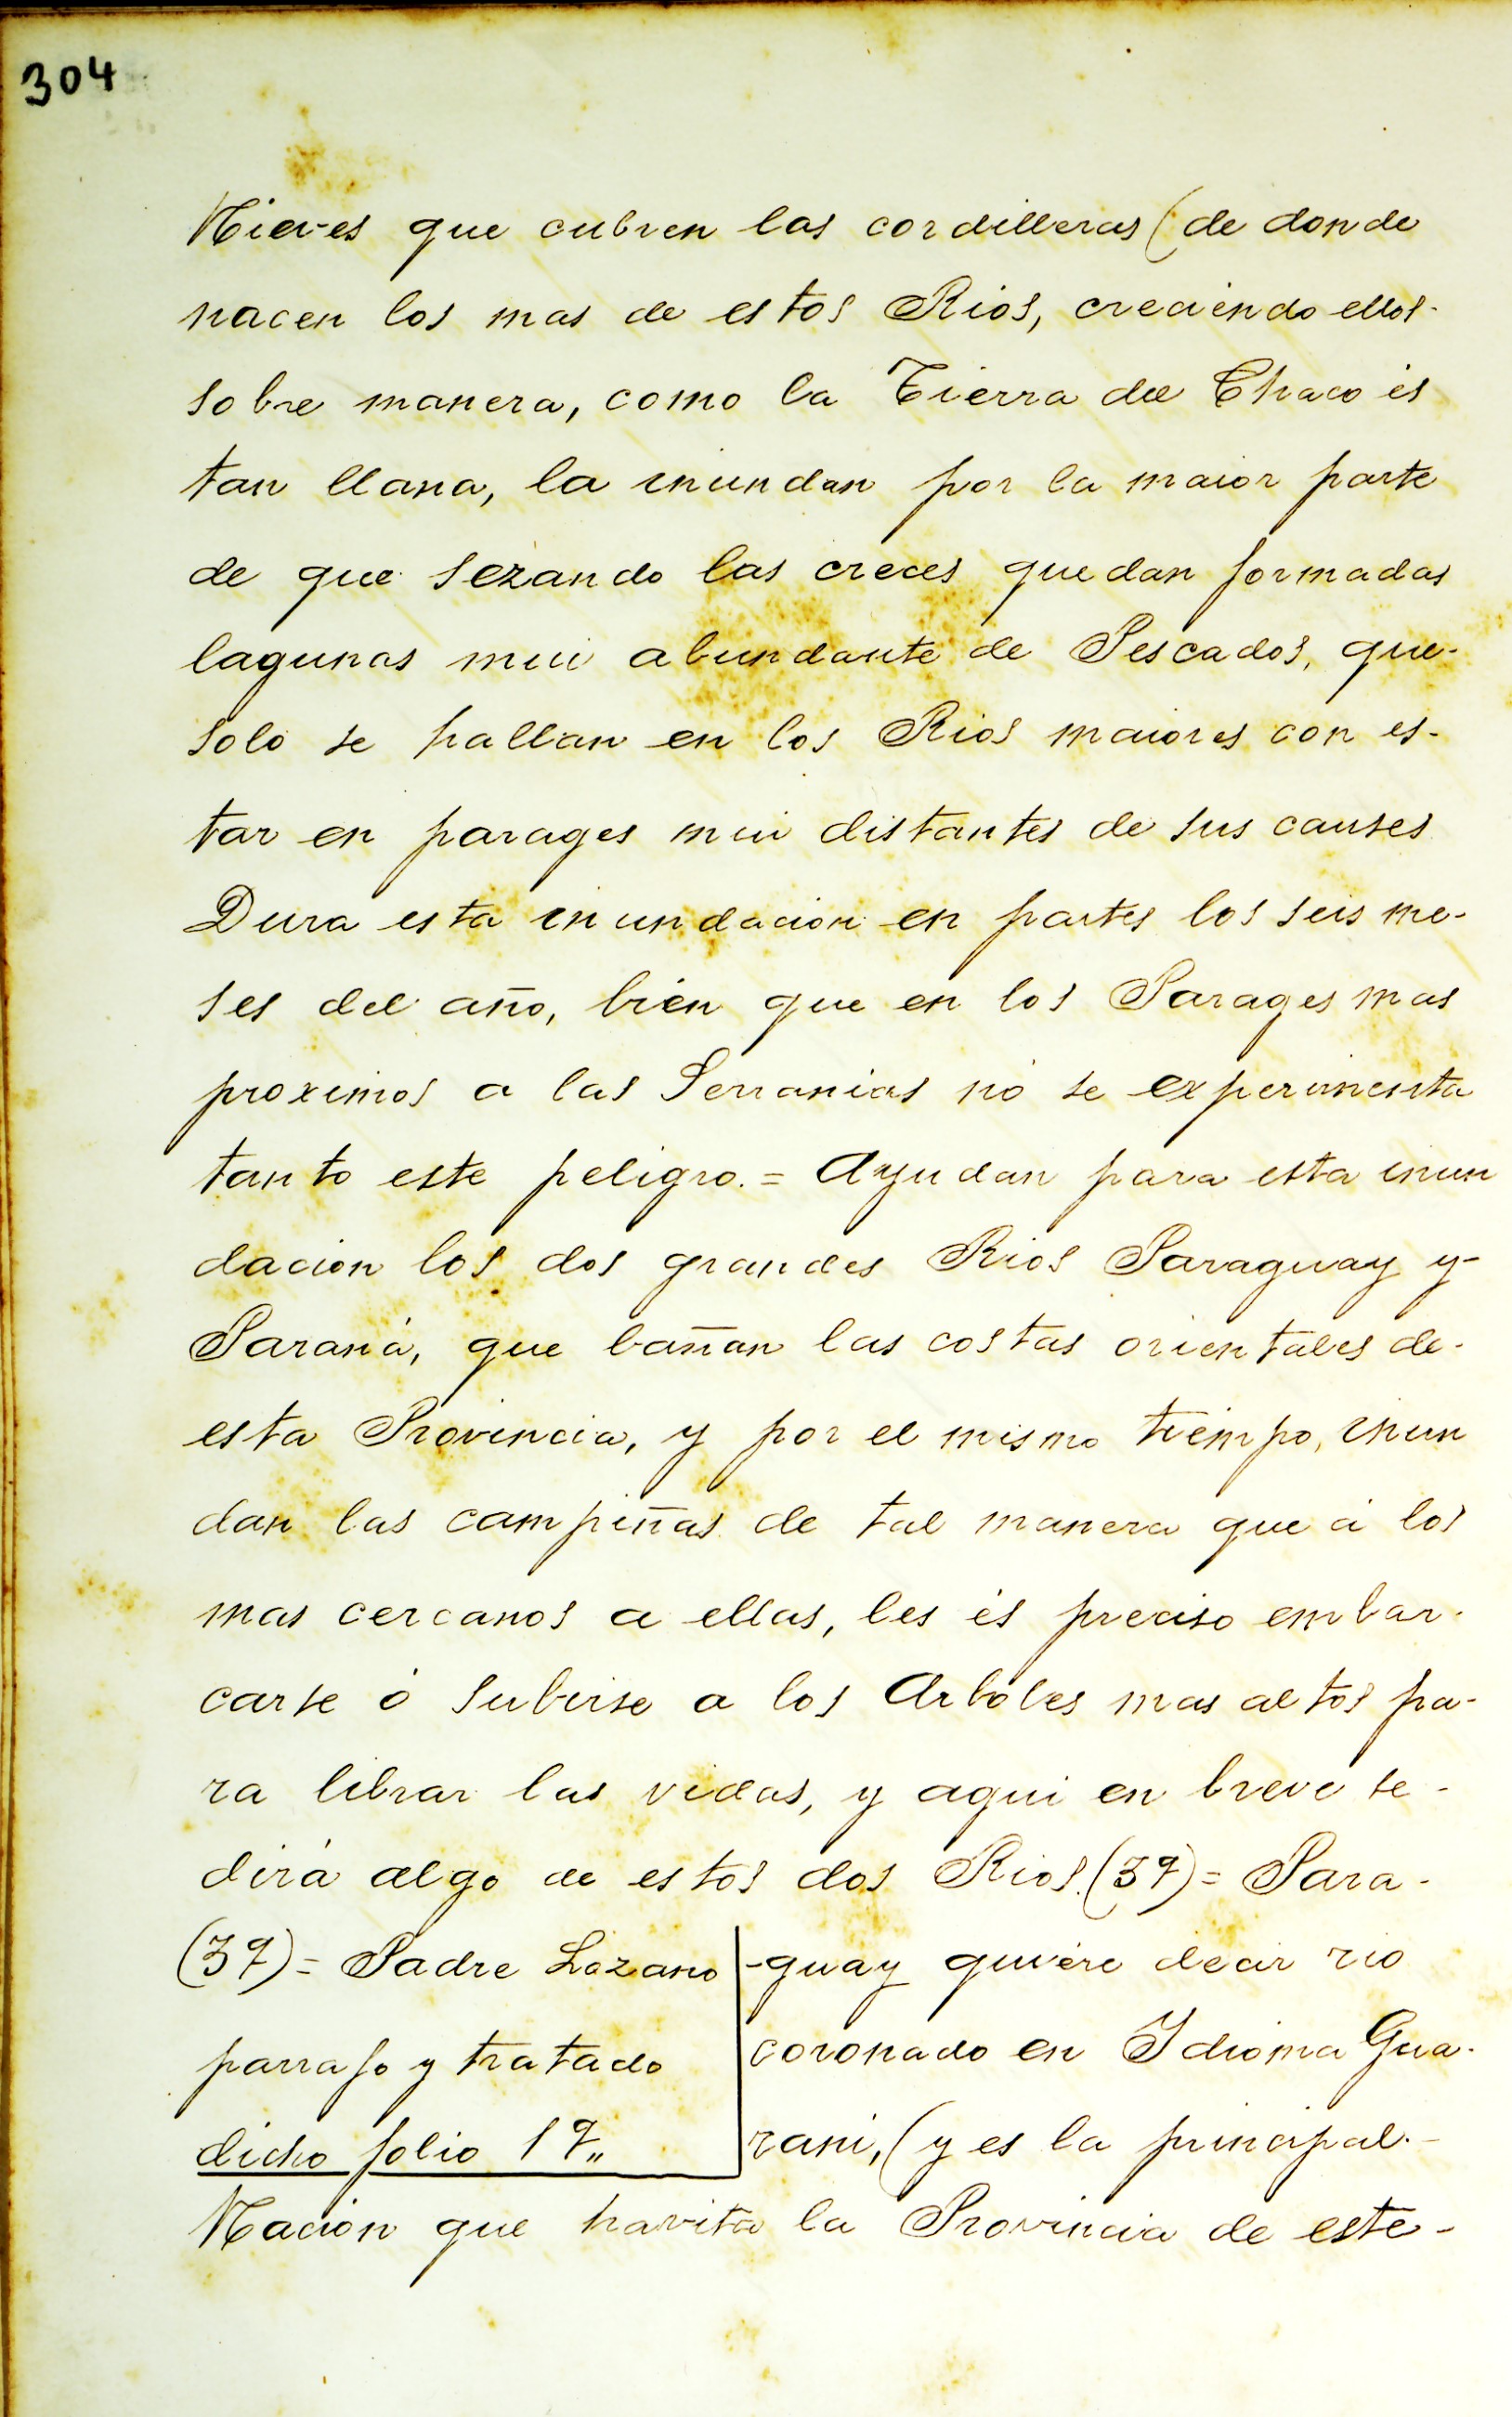 304
Nieves que cubren las cordilleras (de donde
nacen los mas de estos Rios, creciendo ellos-
sobre manera, como la Tierra del Chaco és
tan llana, la inundan por la maior parte
de que sezando las creces quedan formadas
lagunas mui abundante de Pescados, que-
solo se hallan en los Rios maiores con es-
tar en parages mui distantes de sus causes
Dura esta inundacion en partes los seis me-
ses del año, bien que en los Parages mas
proximos a las Serranias no se experimenta
tanto este peligro.= Ayudan para esta inun
dacion los dos grandes Rios Paraguay y-
Paraná, que bañan las costas orientales de-
esta Provincia, y por el mismo tiempo, inun
dan las campiñas de tal manera que á los
mas cercanos a ellas, les és preciso embar-
carse ó subirse a los Arboles mas altos pa-
ra librar las vidas, y aqui en breve se-
dirá algo de estos dos Rios.(37)= Para-
(37)= Padre Lozano
parrafo y tratado
dicho folio 17"
-guay quiere decir rio
coronado en Idioma Gua-
rani, (y es la principal.-
Nacion que havita la Provincia de este-